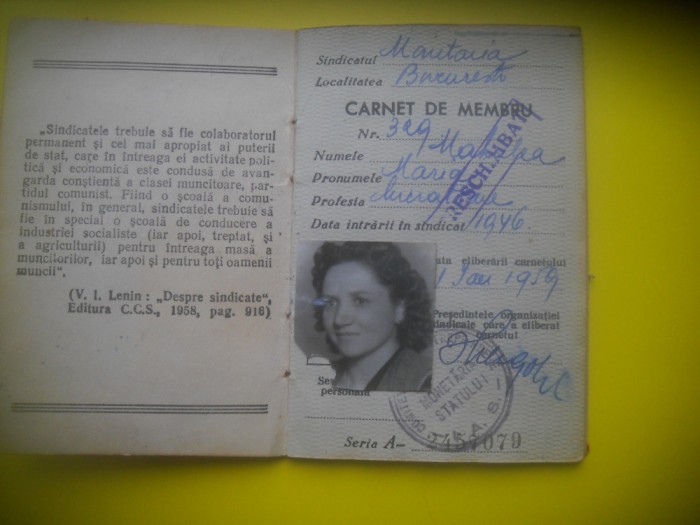 „Sindicatele trebuie să fie colaboratorul
permanent și cel mai apropiat al puterii
de stat, care în întreaga ei activitate poli-
tică și economică este condusă de avan-
garda conștientă a clasei muncitoare, par-
tidul comunist. Fiind o școală a co-
munismului, în general, sindicatele trebuie să
fie în special o școală de conducere a
industriei socialiste (iar apoi, treptat, și
a agriculturii) pentru întreaga masă a
muncitorilor, iar apoi și pentru toți oamenii
muncii”.
(V. I. Lenin : „Despre sindicate”,
Editura C.C.S., 1958, pag. 916)
Sindicatul Monitaria
Localitatea București
CARNET DE MEMBRU
Nr. 329
Numele
Pronumele Maria
Profesia
PRESCHIMBAT
Data intrării în sindicat 1946
ata eliberării carnetului
1 Ian 1959
Președintele organizației
sindicale care a eliberat
carnetul
MONETARIA
STATULUI
personală
Seria A— 457079